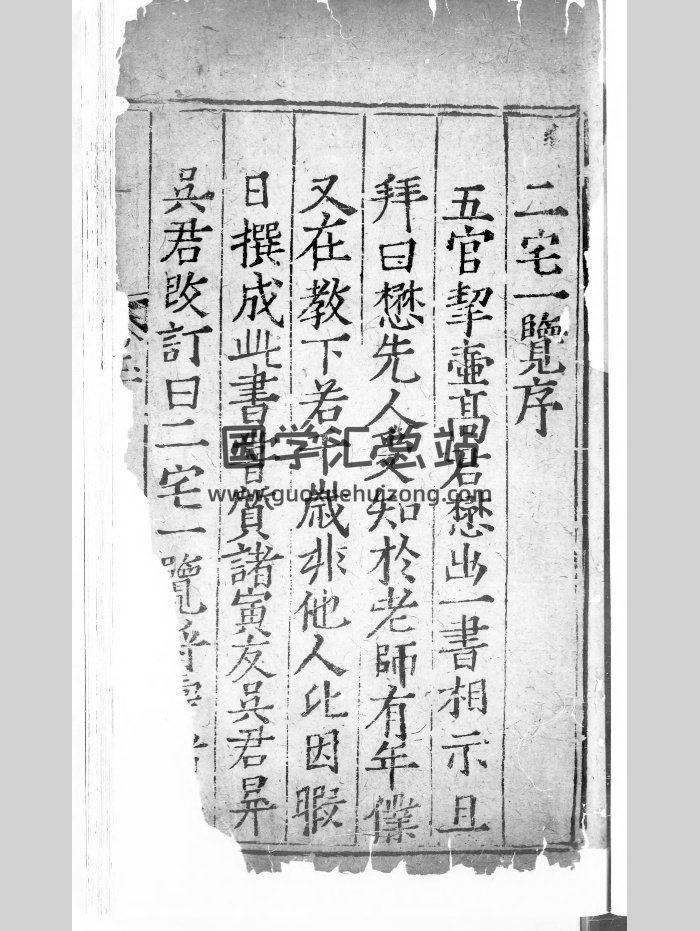 二宅一覽序
五官挈壷髙君懋出一書相示且
拜曰懋先人受知於老師有年僕
又在教下若干歳非他人比因暇
日撰成此書質諸寅友吳君昇
吳君改訂曰二宅一覽將
国学汇总站
www.guoxuehuizong.com